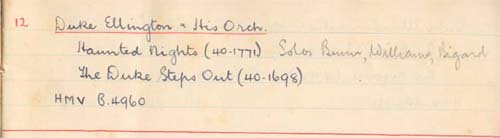 12 Duke Ellington & His Orch.
Haunted Nights (40-1771) Solos Bunn, Williams, Bigard
The Duke Steps Out (40-1698)
HMV B.4960